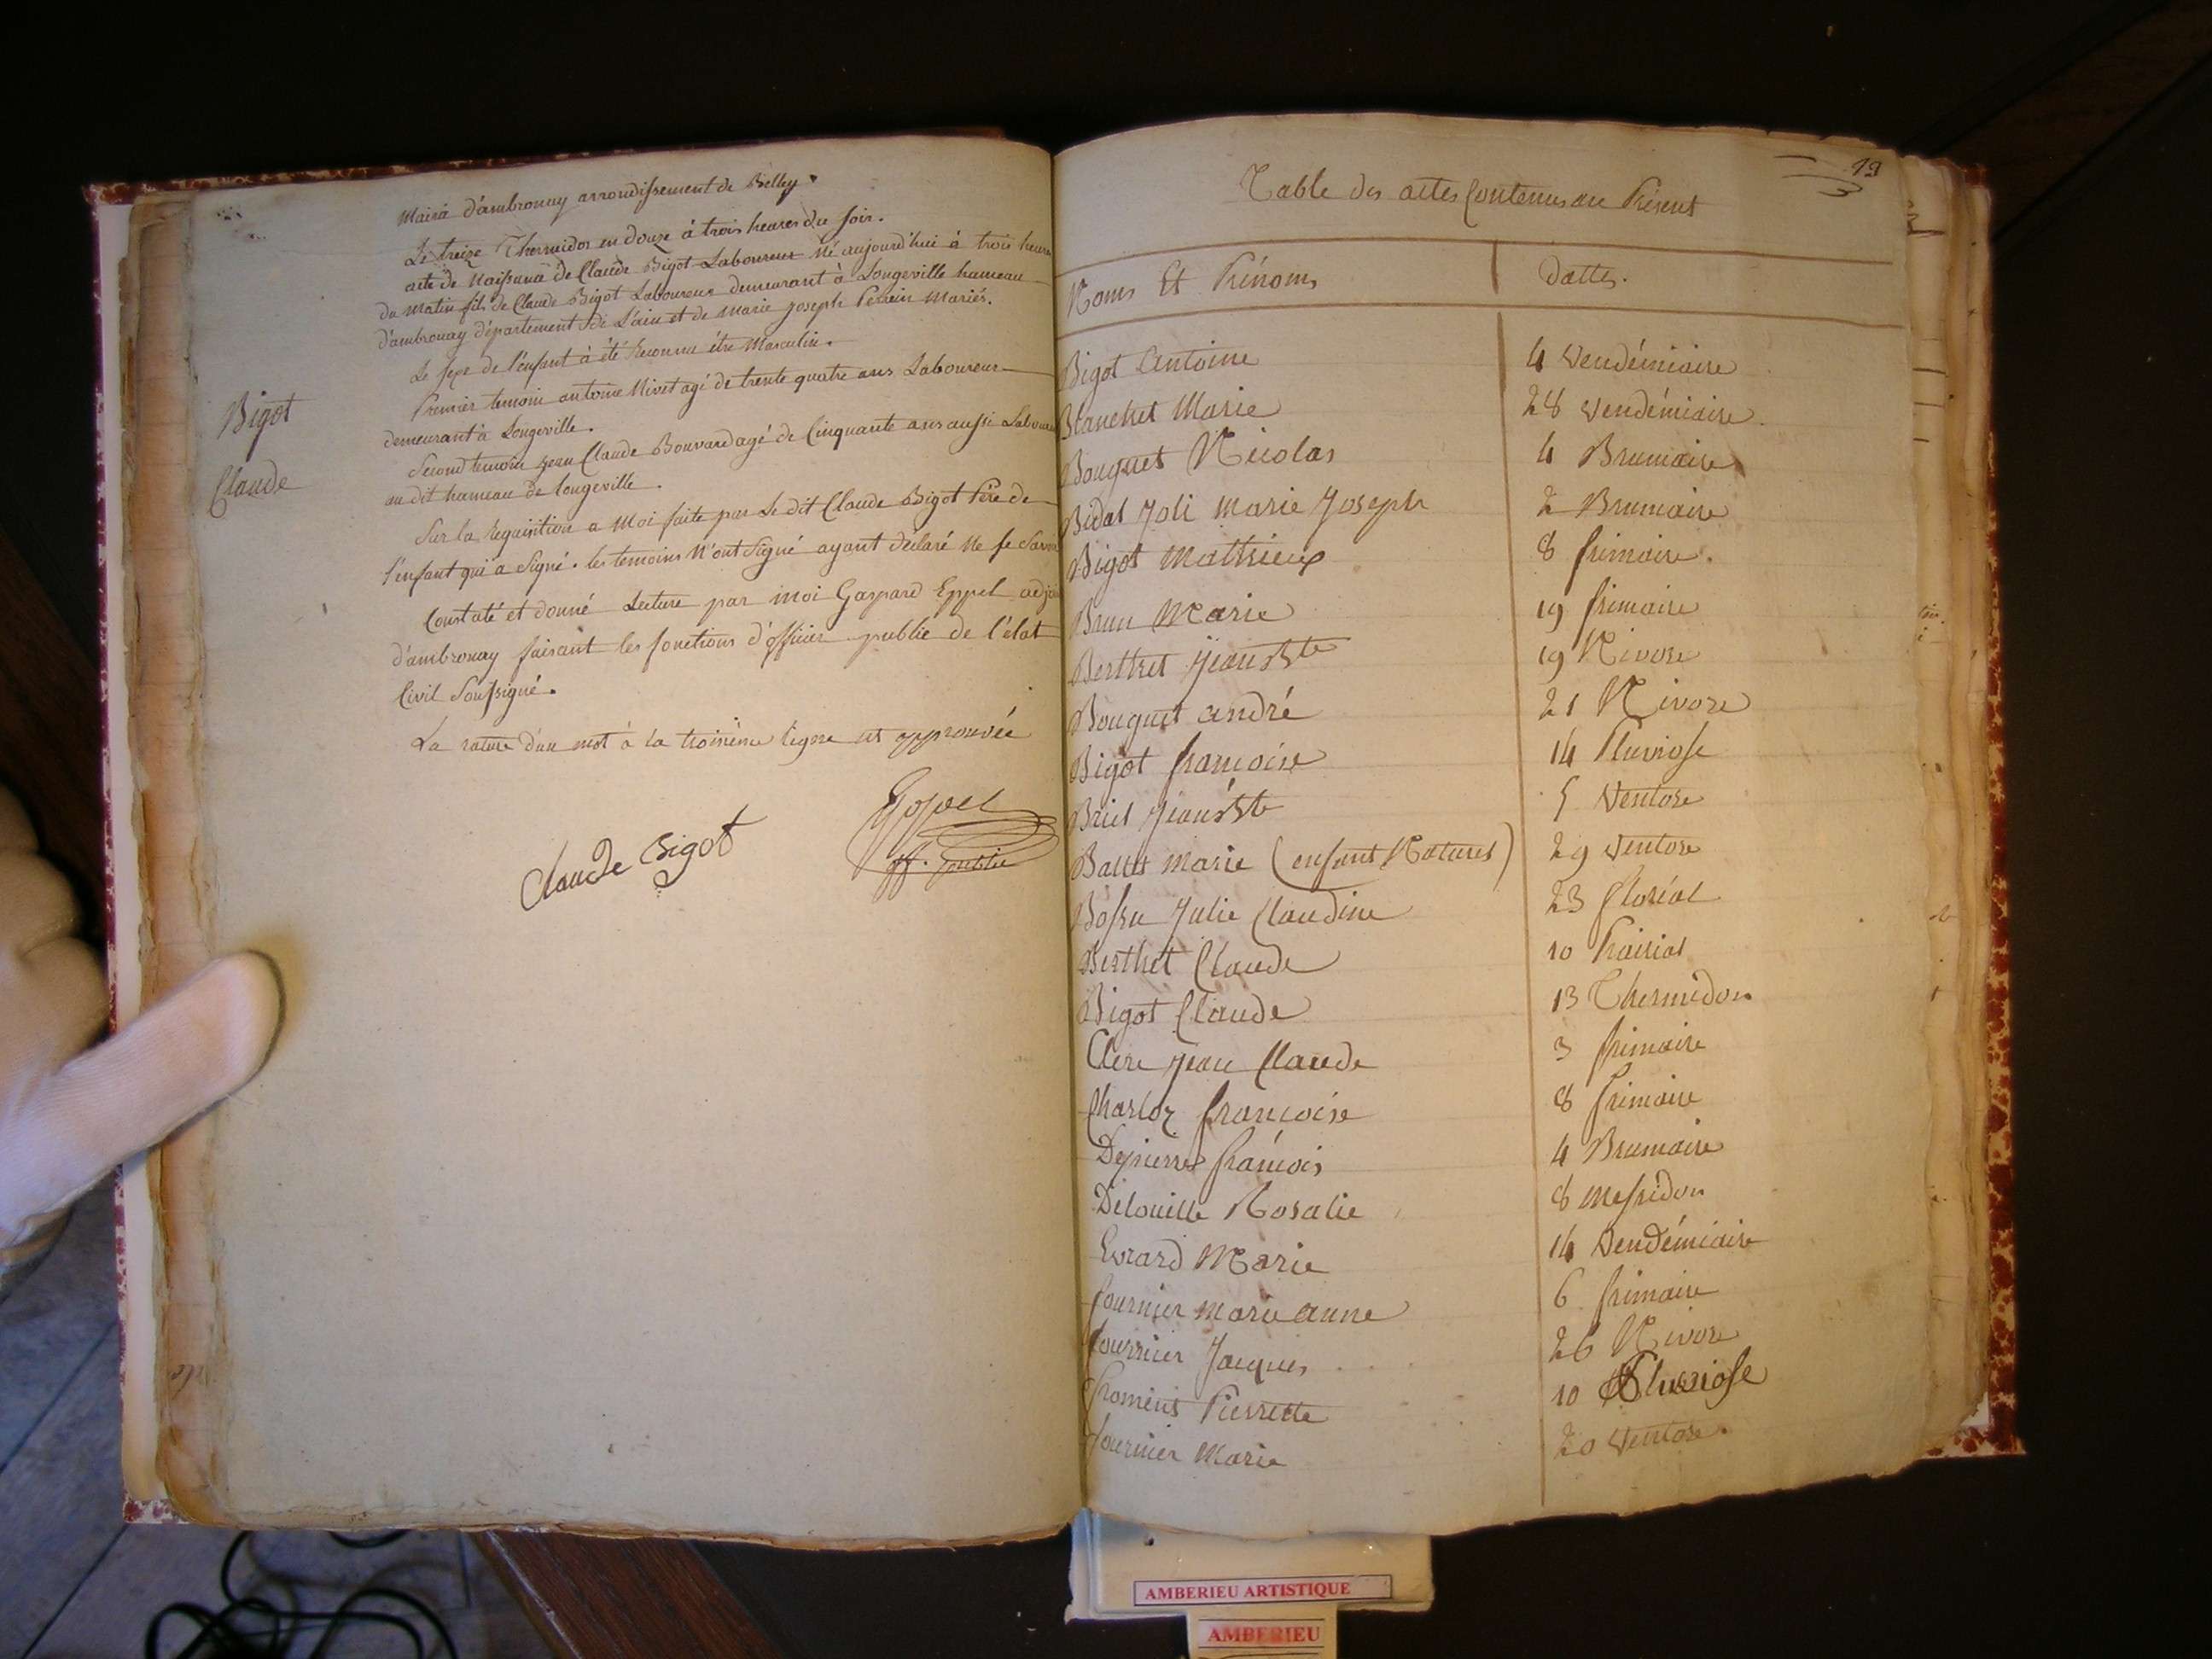 Mairie d'ambronay arrondissement de Belley.
Le treize Thermidor an douze à trois heures du soir.
acte de Naissance de Claude Bigot Laboureur Né aujourd'hui à trois heures
du matin fils de Claude Bigot Laboureur demeurant à Longeville hameau
d'ambronay département de L'ain et de marie joseph Perrin Mariés.
Le sexe de l'enfant à été Reconnu être Masculin.
Premier temoin antoine Nivet agé de trente quatre ans Laboureur
demeurant à Longeville.
Bigot
Claude
Second temoin jean Claude Bouvard agé de Cinquante ans aussi Laboureur
au dit hameau de longeville.
Sur la Requisition a Moi faite par Le dit Claude Bigot Père de
l'enfant qui a signé. les temoins N'ont Signé ayant déclaré Ne le Savoir
Constaté et donné Lecture par moi Gaspard Eppel adj
d'ambronay faisant les fonctions d'officier public de l'état
Civil Soussigné.
La rature d'un mot à la troisième ligne est approuvée
Claude Bigot
Eppel
off. public
19
Table des actes Contenus au Présent
Noms Et Prénoms
Dattes.
Bigot Antoine 4 Vendémiaire
Blanchet Marie 28 Vendémiaire
Bouquet Nicolas 4 Brumaire
Bidal Joli Marie Joseph 2 Brumaire
Bigot Matthieux 8 frimaire.
Brun Marie 19 frimaire
Berthet Jean Bte 19 Nivose
Bouquet andré 21 Nivose
Bigot francoise 14 Pluviose
Briel Jean Bte 5 Ventose
Ballet Marie (enfant Naturel) 29 Ventose
Bossu Julie Claudine 23 floréal
Berthet Claude 10 Prairial
Bigot Claude 13 Thermidor
Clere Jean Claude 3 frimaire
Charloz francoise 8 frimaire
Depierre francois 4 Brumaire
Delouille Rosalie 8 Messidor
Evrard Marie 14 Vendémiaire
fournier marie anne 6 frimaire
fournier Jacques 26 Nivose
froment Pierrette 10 Pluviose
fournier Marie 20 Ventose.
AMBERIEU ARTISTIQUE
AMBERIEU